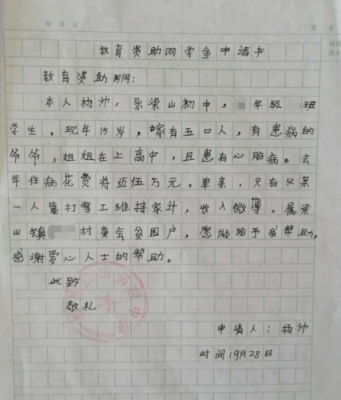 教育资助网学金申请书
教育资助网:
本人杨帅,张梁山初中,年级 班
学生。现年15岁,家有五口人,有患病的
爷爷,姐姐在上高中,且患有心脏病。去
年住病花费将近伍万元,单亲,只有父亲
一人靠打零工维持家计,收入微薄。属梁
山镇 村委会贫困户,愿能给予我帮助,
感谢爱心人士的帮助。
此致
敬礼
申请人:杨帅
时间:9月28日